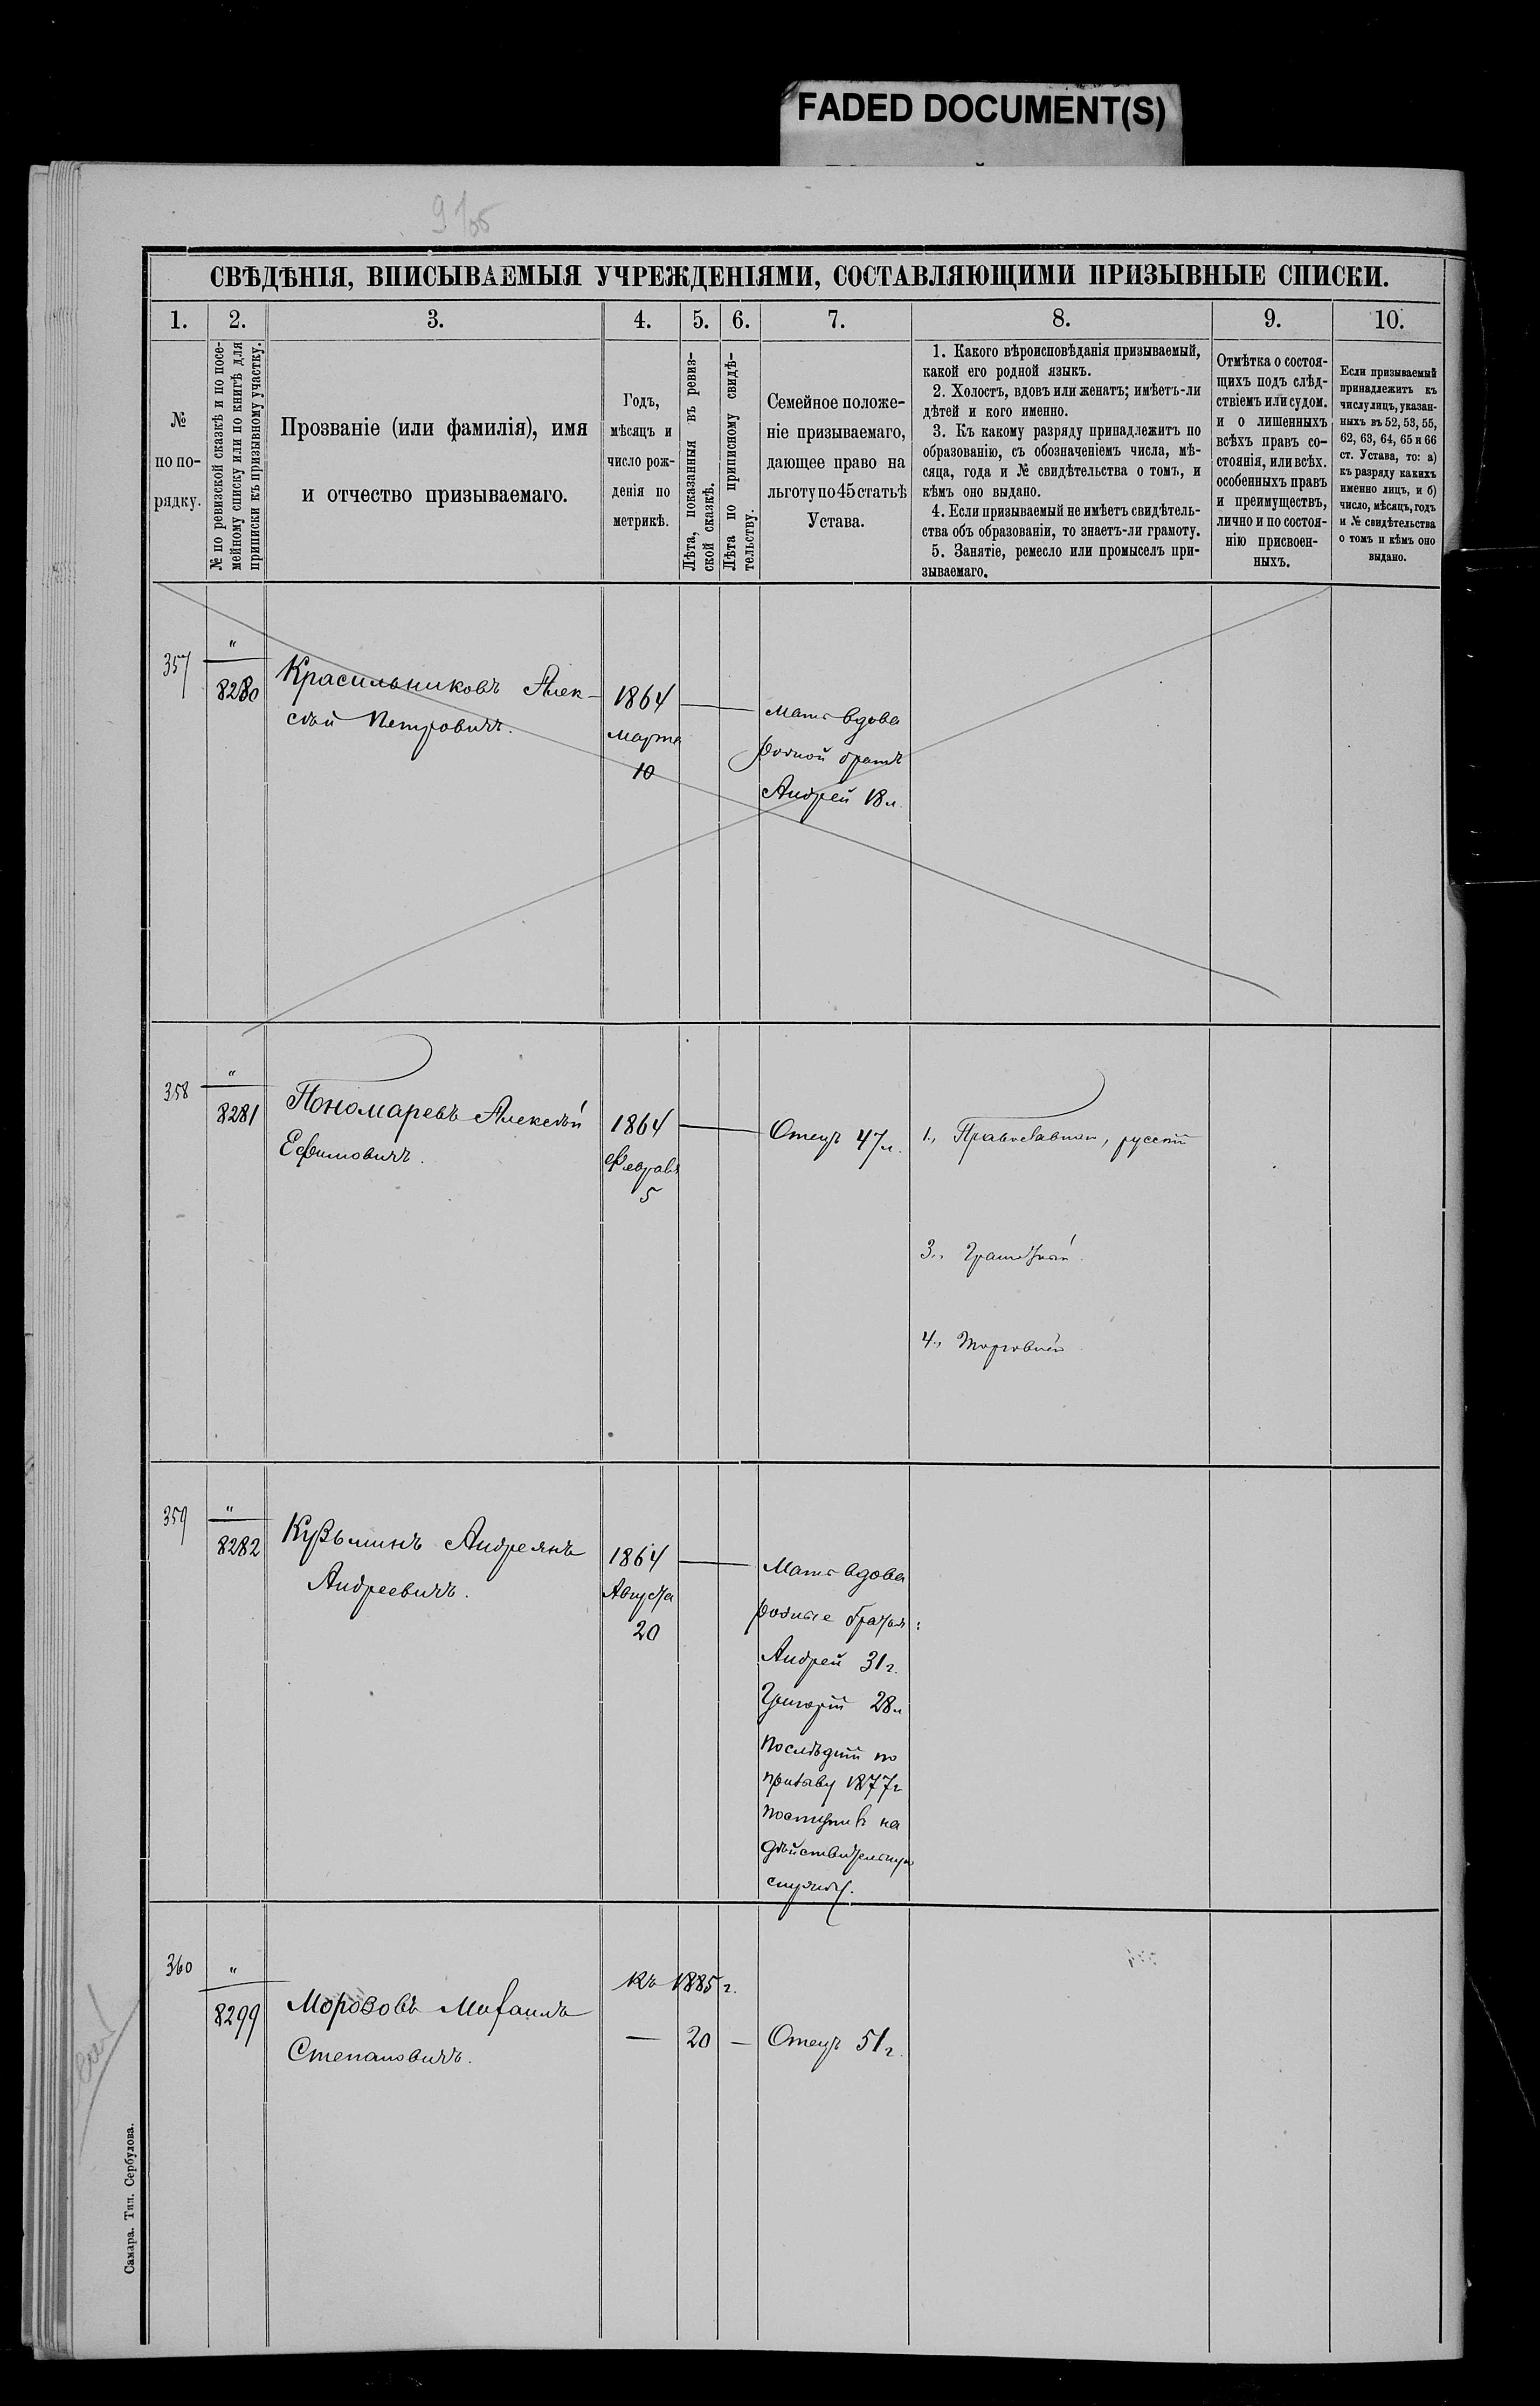 FADED DOCUMENT(S)
СВѢДѢНІЯ, ВПИСЫВАЕМЫЯ УЧРЕЖДЕНІЯМИ, СОСТАВЛЯЮЩИМИ ПРИЗЫВНЫЕ СПИСКИ.
1. 2. 3. 4. 5. 6. 7. 8. 9. 10.
№
по по-
рядку.
№ по ревизской сказкѣ и по посе-
мейному списку или по книгѣ для
приписки къ призывному участку.
Прозваніе (или фамилія), имя
и отчество призываемаго.
Годъ,
мѣсяцъ и
число рож-
денія по
метрикѣ.
Лѣта, показанныя въ ревиз-
ской сказкѣ.
Лѣта по приписному свидѣ-
тельству.
Семейное положе-
ніе призываемаго,
дающее право на
льготу по 45 статьѣ
Устава.
1. Какого вѣроисповѣданія призываемый,
какой его родной языкъ.
2. Холостъ, вдовъ или женатъ; имѣетъ-ли
дѣтей и кого именно.
3. Къ какому разряду принадлежитъ по
образованію, съ обозначеніемъ числа, мѣ-
сяца, года и № свидѣтельства о томъ, и
кѣмъ оно выдано.
4. Если призываемый не имѣетъ свидѣтель-
ства объ образованіи, то знаетъ-ли грамоту.
5. Занятіе, ремесло или промыселъ при-
зываемаго.
Отмѣтка о состоя-
щихъ подъ слѣд-
ствіемъ или судом.
и о лишенныхъ
всѣхъ правъ со-
стоянія, или всѣх.
особенныхъ правъ
и преимуществъ,
лично и по состоя-
нію присвоен-
ныхъ.
Если призываемый
принадлежитъ къ
числу лицъ, указан-
ныхъ въ 52, 53, 55,
62, 63, 64, 65 и 66
ст. Устава, то: а)
къ разряду какихъ
именно лицъ, и б)
число, мѣсяцъ, годъ
и № свидѣтельства
о томъ и кѣмъ оно
выдано.
357
"
8280
Красильниковъ Алек-
сѣй Петровичъ.
1864
Марта
10
Мать вдова
родной братъ
Андрей 18 л.
358
"
8281
Пономаревъ Алексѣй
Ефимовичъ.
1864
Февраля
5
Отецъ 47 л.
1., Православный, русскій
3., Грамотный.
4., Торговлей
359
"
8282
Кузьминъ Андреянъ
Андреевичъ.
1864
Августа
20
Мать вдова
родные братья:
Андрей 31 г.
Григорій 28 л
послѣдній по
призыву 1877 г
поступилъ на
дѣйствительную
службу.
360
"
8299
Морозовъ Михаилъ
Степановичъ.
Къ 1885 г.
— 20 —
Отецъ 51 г.
Самара. Тип. Сербулова.